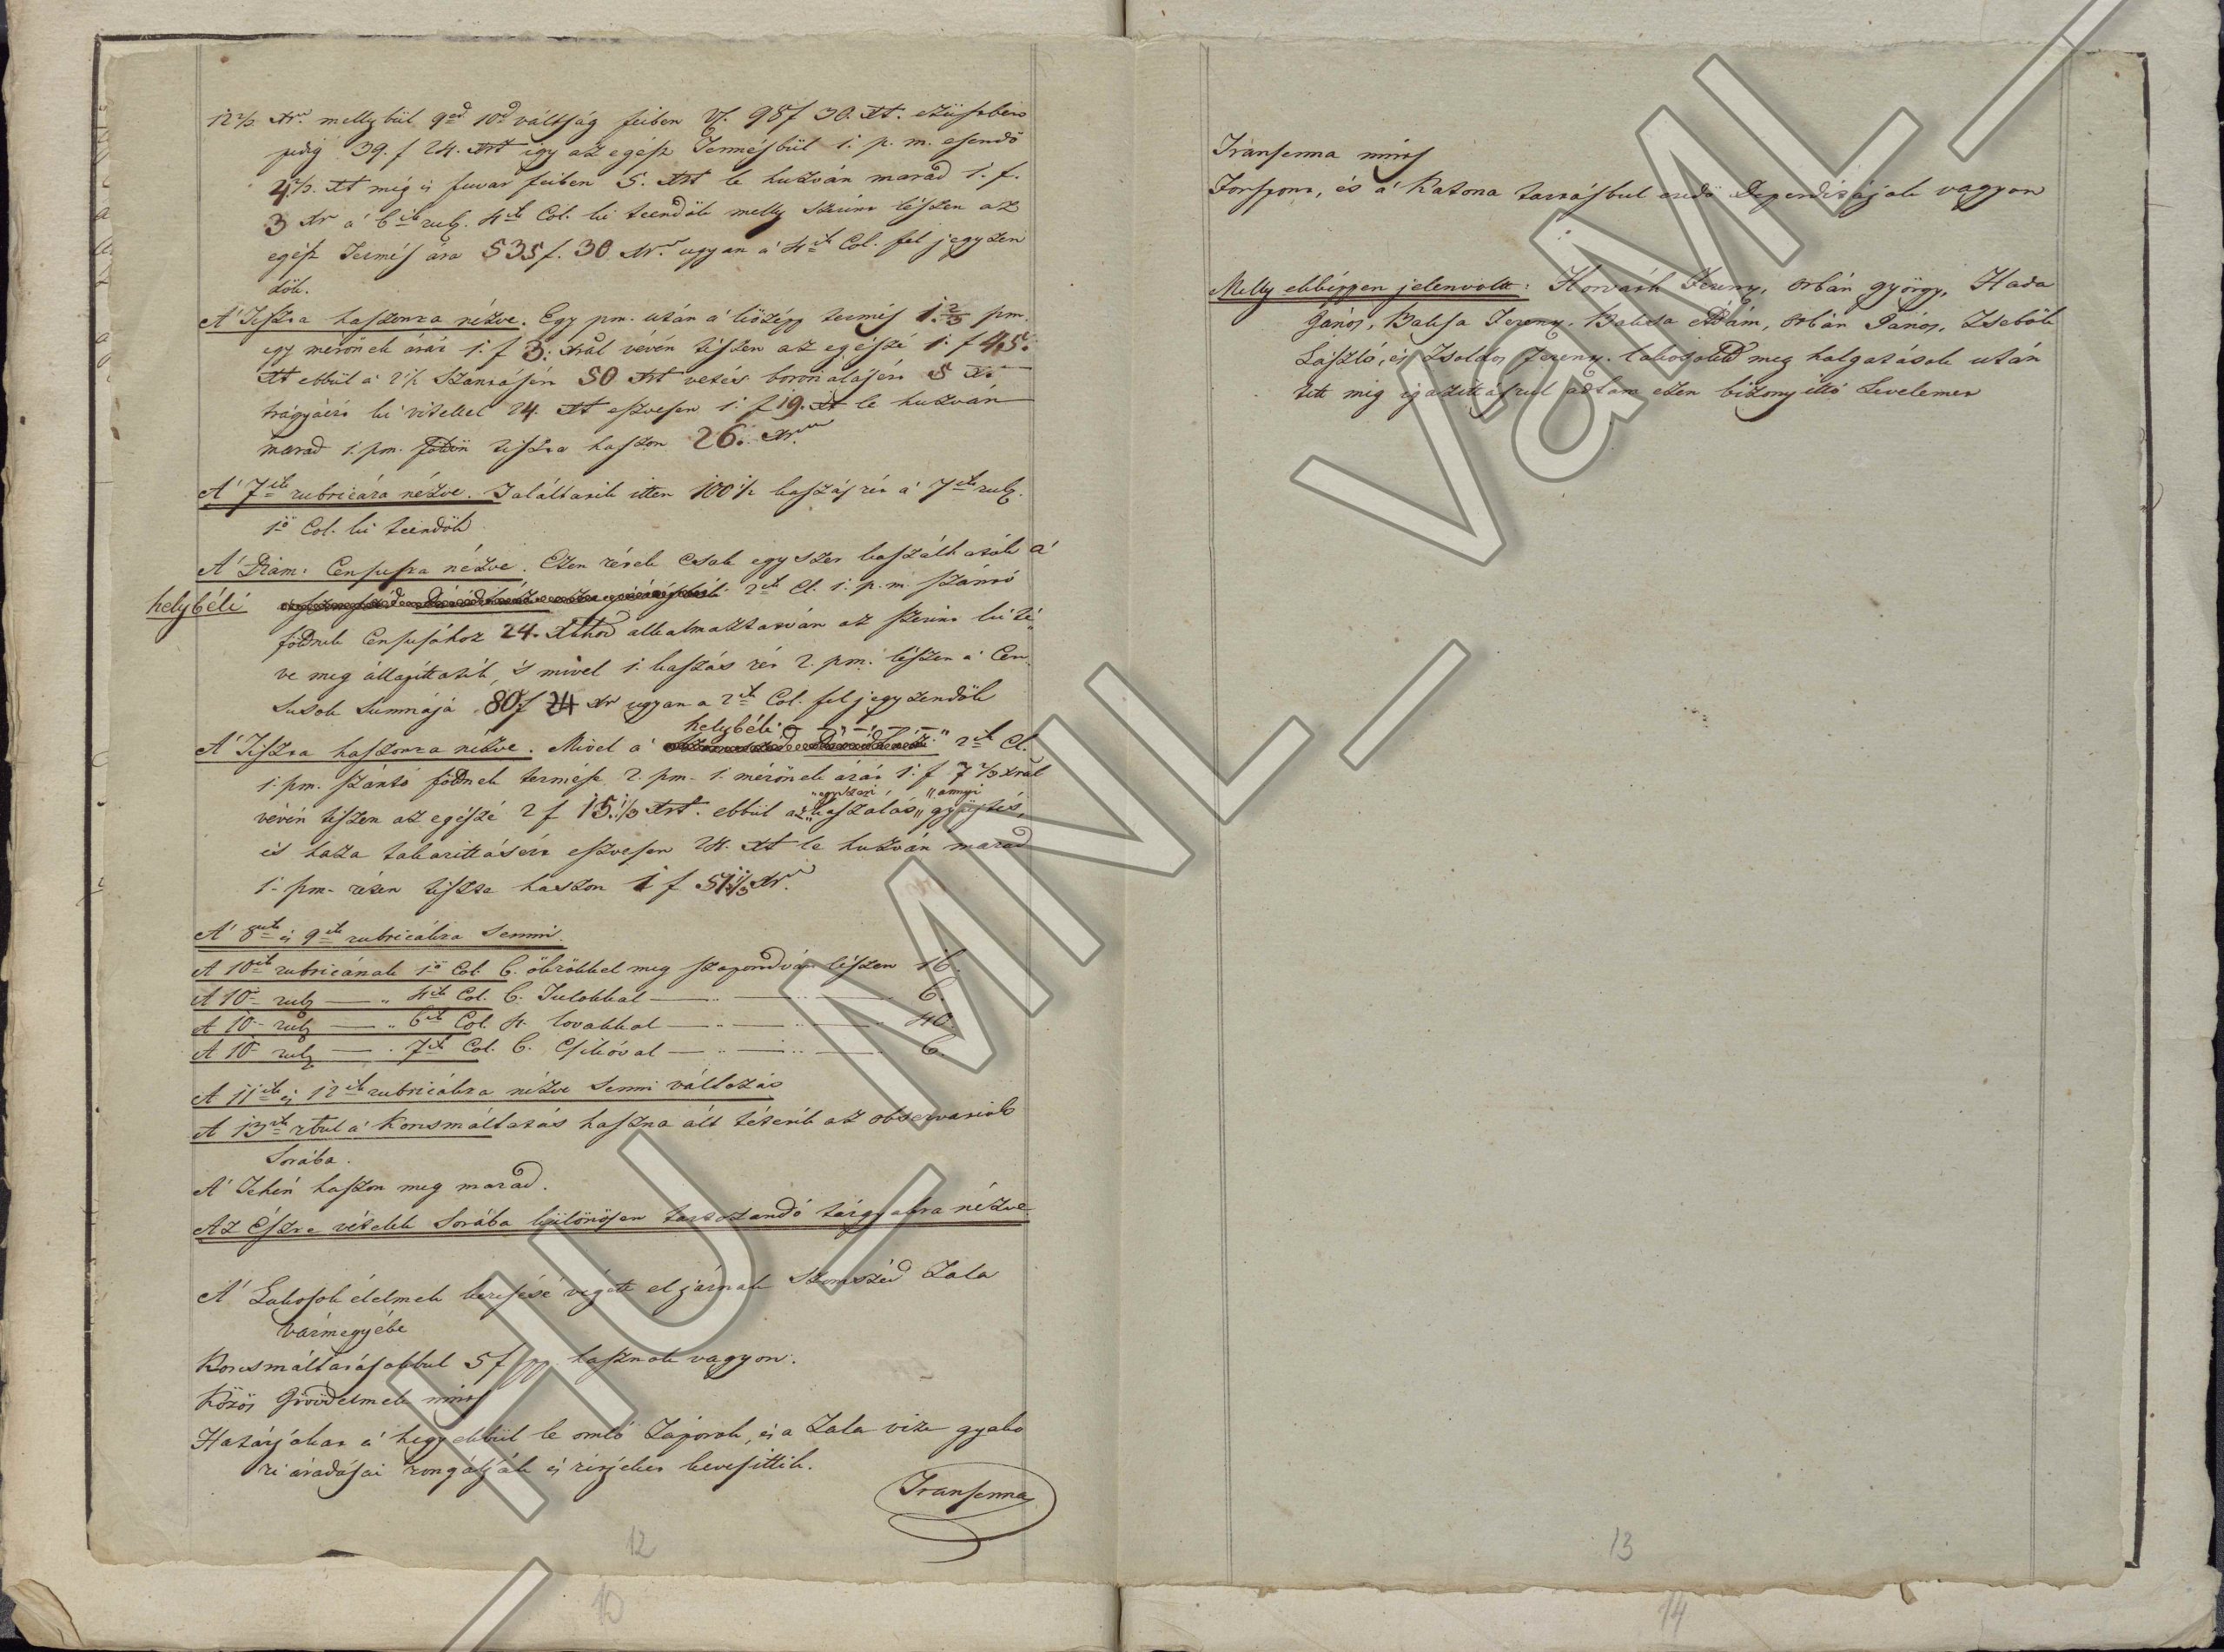 12½ Xr. mellybül 9ed 10ed váltság feiben Vf. 98f 30. Xt. ezüstben
pedig 39. f 24. Xrt igy az egész Termésbül 1. p. m. esendő
4⅔. Xt még is fuvar feiben 5. Xrt le huzván marad 1. f.
3 Xr a' 6ik rub. 4ik Col. ki teendők melly szerint lészen az
egész Termés ára 535 f. 30 Xr. ugyan a' 4ik Col. fel jegyzen
dők.
A' Tiszta haszonra nézve. Egy pm. után a' középp termés 1.⅔ pm.
egy mérőnek árát 1. f 3. Xrál vévén tészen az egészé 1. f 45.
Xt ebbül a' 2½ szantásért 50 Xrt vetés boronálásért 5 Xr
trágyáért ki vitellel 24. Xt eszvesen 1. f 19. Xt le huzván
marad 1. pm. földön tiszta haszon 26. Xr.
A' 7ik rubricára nézve. Találtatik itten 100½ kaszás rét a' 7ik rub.
1ő Col. ki teendők
A' Diam: Censusra nézve. Ezen rétek csak egyszer kaszáltatók a'
helybéli 2ik Cl. 1. p. m. szántó
földnek Censusához 24. Xrhoz alkalmaztatván az szerint ki té
ve meg állapíttatik, 's mivel 1. kaszás rét 2. pm. lészen a' Cen
susok Summája 80f 24 Xr ugyan a 2ik Col. fel jegyzendők
helybéli
A' Tiszta haszonra nézve. Mivel a' 2ik Cl.
1. pm. szántó földnek termése 2. pm. 1. mérőnek árát 1. f 7⅔ Xrál
„egyszeri „annyi
vévén tészen az egészé 2 f 15.⅓ Xrt. ebbül az „kaszalás„ gyüjtés,
és haza takarittásért eszvesen 24. Xt le huzván marad
1. pm. réten tiszta haszon 1 f 51⅓ Xr.
A' 8ik és 9ik rubricákra Semmi.
A 10ik rubricának 1ő Col. 6. ökrökkel meg szaporodván lészen 16.
A 10 rub — „ 4ik Col. 6. Tulokkal — „ — „ — „ 6.
A 10 rub — „ 6ik Col. 4. lovakkal — „ — „ — „ 40.
A 10 rub — „ 7ik Col. 6. Csikóval — „ — „ — „ 6.
A 11ik és 12ik rubricákra nézve Semmi változás
A 13ik rbul a' Korcsmáltatás haszna ált tétetik az observatiók
Sorába.
A' Tehén haszon meg marad.
Az Észre vételek Sorába különösen tartozandó tárgyakra nézve
A' Lakosok élelmek keresése végett el járnak szomszéd Zala
Vármegyébe
Korcsmáltatásokbul 5 f pp. hasznok vagyon.
Közös Jövedelmek nints
Határjokat a' hegyekbül le omló Záporok, és a Zala vize gyako
ri áradásai rongálják és rétjeket kevesittik.
Transenna
12
10
Transenna nints
Forspont, és a' Katona tartásbul eredő Deperditájok vagyon
Melly ekképpen jelenvolt: Horváth Ferenz, Orbán györgy, Hada
János, Baksa Ferenz, Baksa Ádám, Orbán János, Zsebők
László, és Zsoldos Ferenz. lakosok meg halgatások után
tett meg igazittásrul adtam ezen bizonyittó Levelemet
13
14
HU_MNL_VaML_